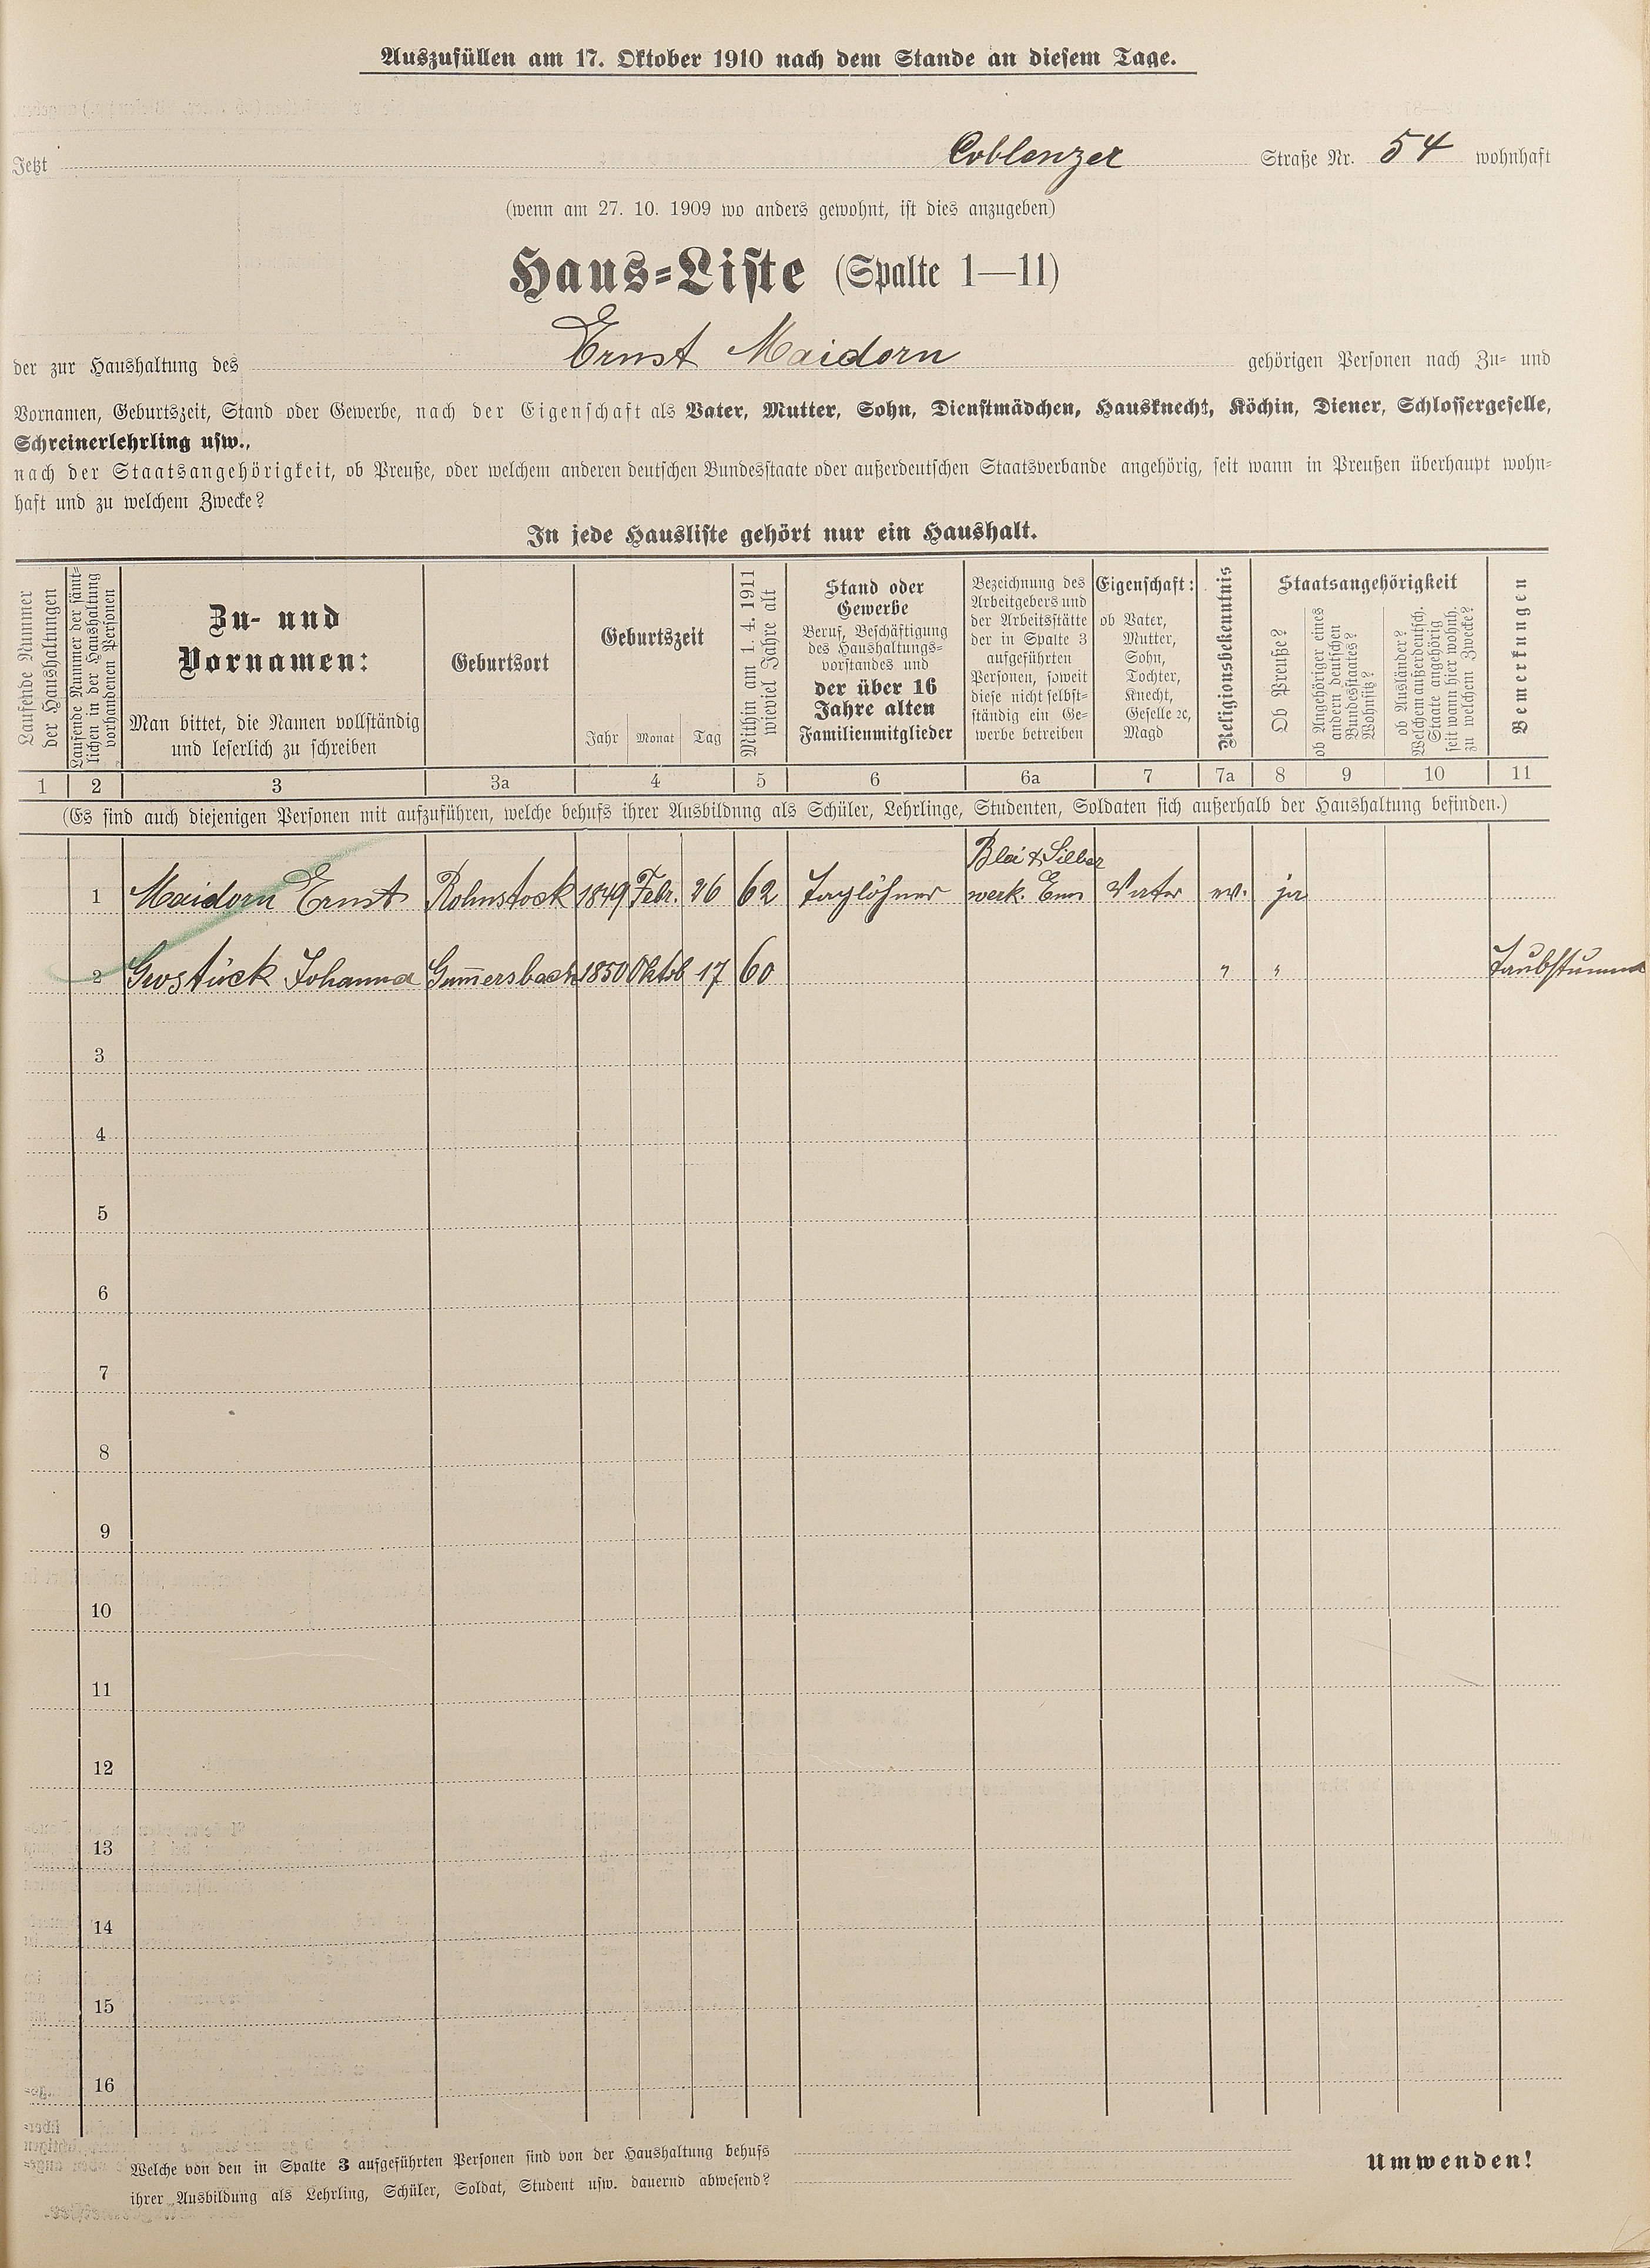 Auszufüllen am 17. Oktober 1910 nach dem Stande an diesem Tage.
Jetzt Coblenzer Straße Nr. 54 wohnhaft
(wenn am 27. 10. 1909 wo anders gewohnt, ist dies anzugeben)
Haus-Liste (Spalte 1—11)
der zur Haushaltung des Ernst Maidorn gehörigen Personen nach Zu- und
Vornamen, Geburtszeit, Stand oder Gewerbe, nach der Eigenschaft als Vater, Mutter, Sohn, Dienstmädchen, Hausknecht, Köchin, Diener, Schlossergeselle,
Schreinerlehrling usw.,
nach der Staatsangehörigkeit, ob Preuße, oder welchem anderen deutschen Bundesstaate oder außerdeutschen Staatsverbande angehörig, seit wann in Preußen überhaupt wohn-
haft und zu welchem Zwecke?
In jede Hausliste gehört nur ein Haushalt.
Laufende Nummer
der Haushaltungen
Laufende Nummer der sämt-
lichen in der Haushaltung
vorhandenen Personen
Zu- und
Vornamen:
Man bittet, die Namen vollständig
und leserlich zu schreiben
Geburtsort
Geburtszeit
Jahr Monat Tag
Mithin am 1. 4. 1911
wieviel Jahre alt
Stand oder
Gewerbe
Beruf, Beschäftigung
des Haushaltungs-
vorstandes und
der über 16
Jahre alten
Familienmitglieder
Bezeichnung des
Arbeitgebers und
der Arbeitsstätte
der in Spalte 3
aufgeführten
Personen, soweit
diese nicht selbst-
ständig ein Ge-
werbe betreiben
Eigenschaft:
ob Vater,
Mutter,
Sohn,
Tochter,
Knecht,
Geselle ꝛc,
Magd
Religionsbekenntnis
Staatsangehörigkeit
Ob Preuße?
ob Angehöriger eines
andern deutschen
Bundesstaates?
Wohnsitz?
ob Ausländer?
Welchem außerdeutsch.
Staate angehörig
seit wann hier wohnh.
zu welchem Zwecke?
Bemerkungen
1 2 3 3a 4 5 6 6a 7 7a 8 9 10 11
(Es sind auch diejenigen Personen mit aufzuführen, welche behufs ihrer Ausbildung als Schüler, Lehrlinge, Studenten, Soldaten sich außerhalb der Haushaltung befinden.)
Blei & Silber
1 Maidorn Ernst Rohnstock 1849 Febr. 26 62 Taglöhner werk. Ems Vater ev. ja
2 Johanna Gum̅ersbach 1850 Oktob 17 60 " " Taubstumm
3
4
5
6
7
8
9
10
11
12
13
14
15
16
Welche von den in Spalte 3 aufgeführten Personen sind von der Haushaltung behufs
ihrer Ausbildung als Lehrling, Schüler, Soldat, Student usw. dauernd abwesend?
Umwenden!